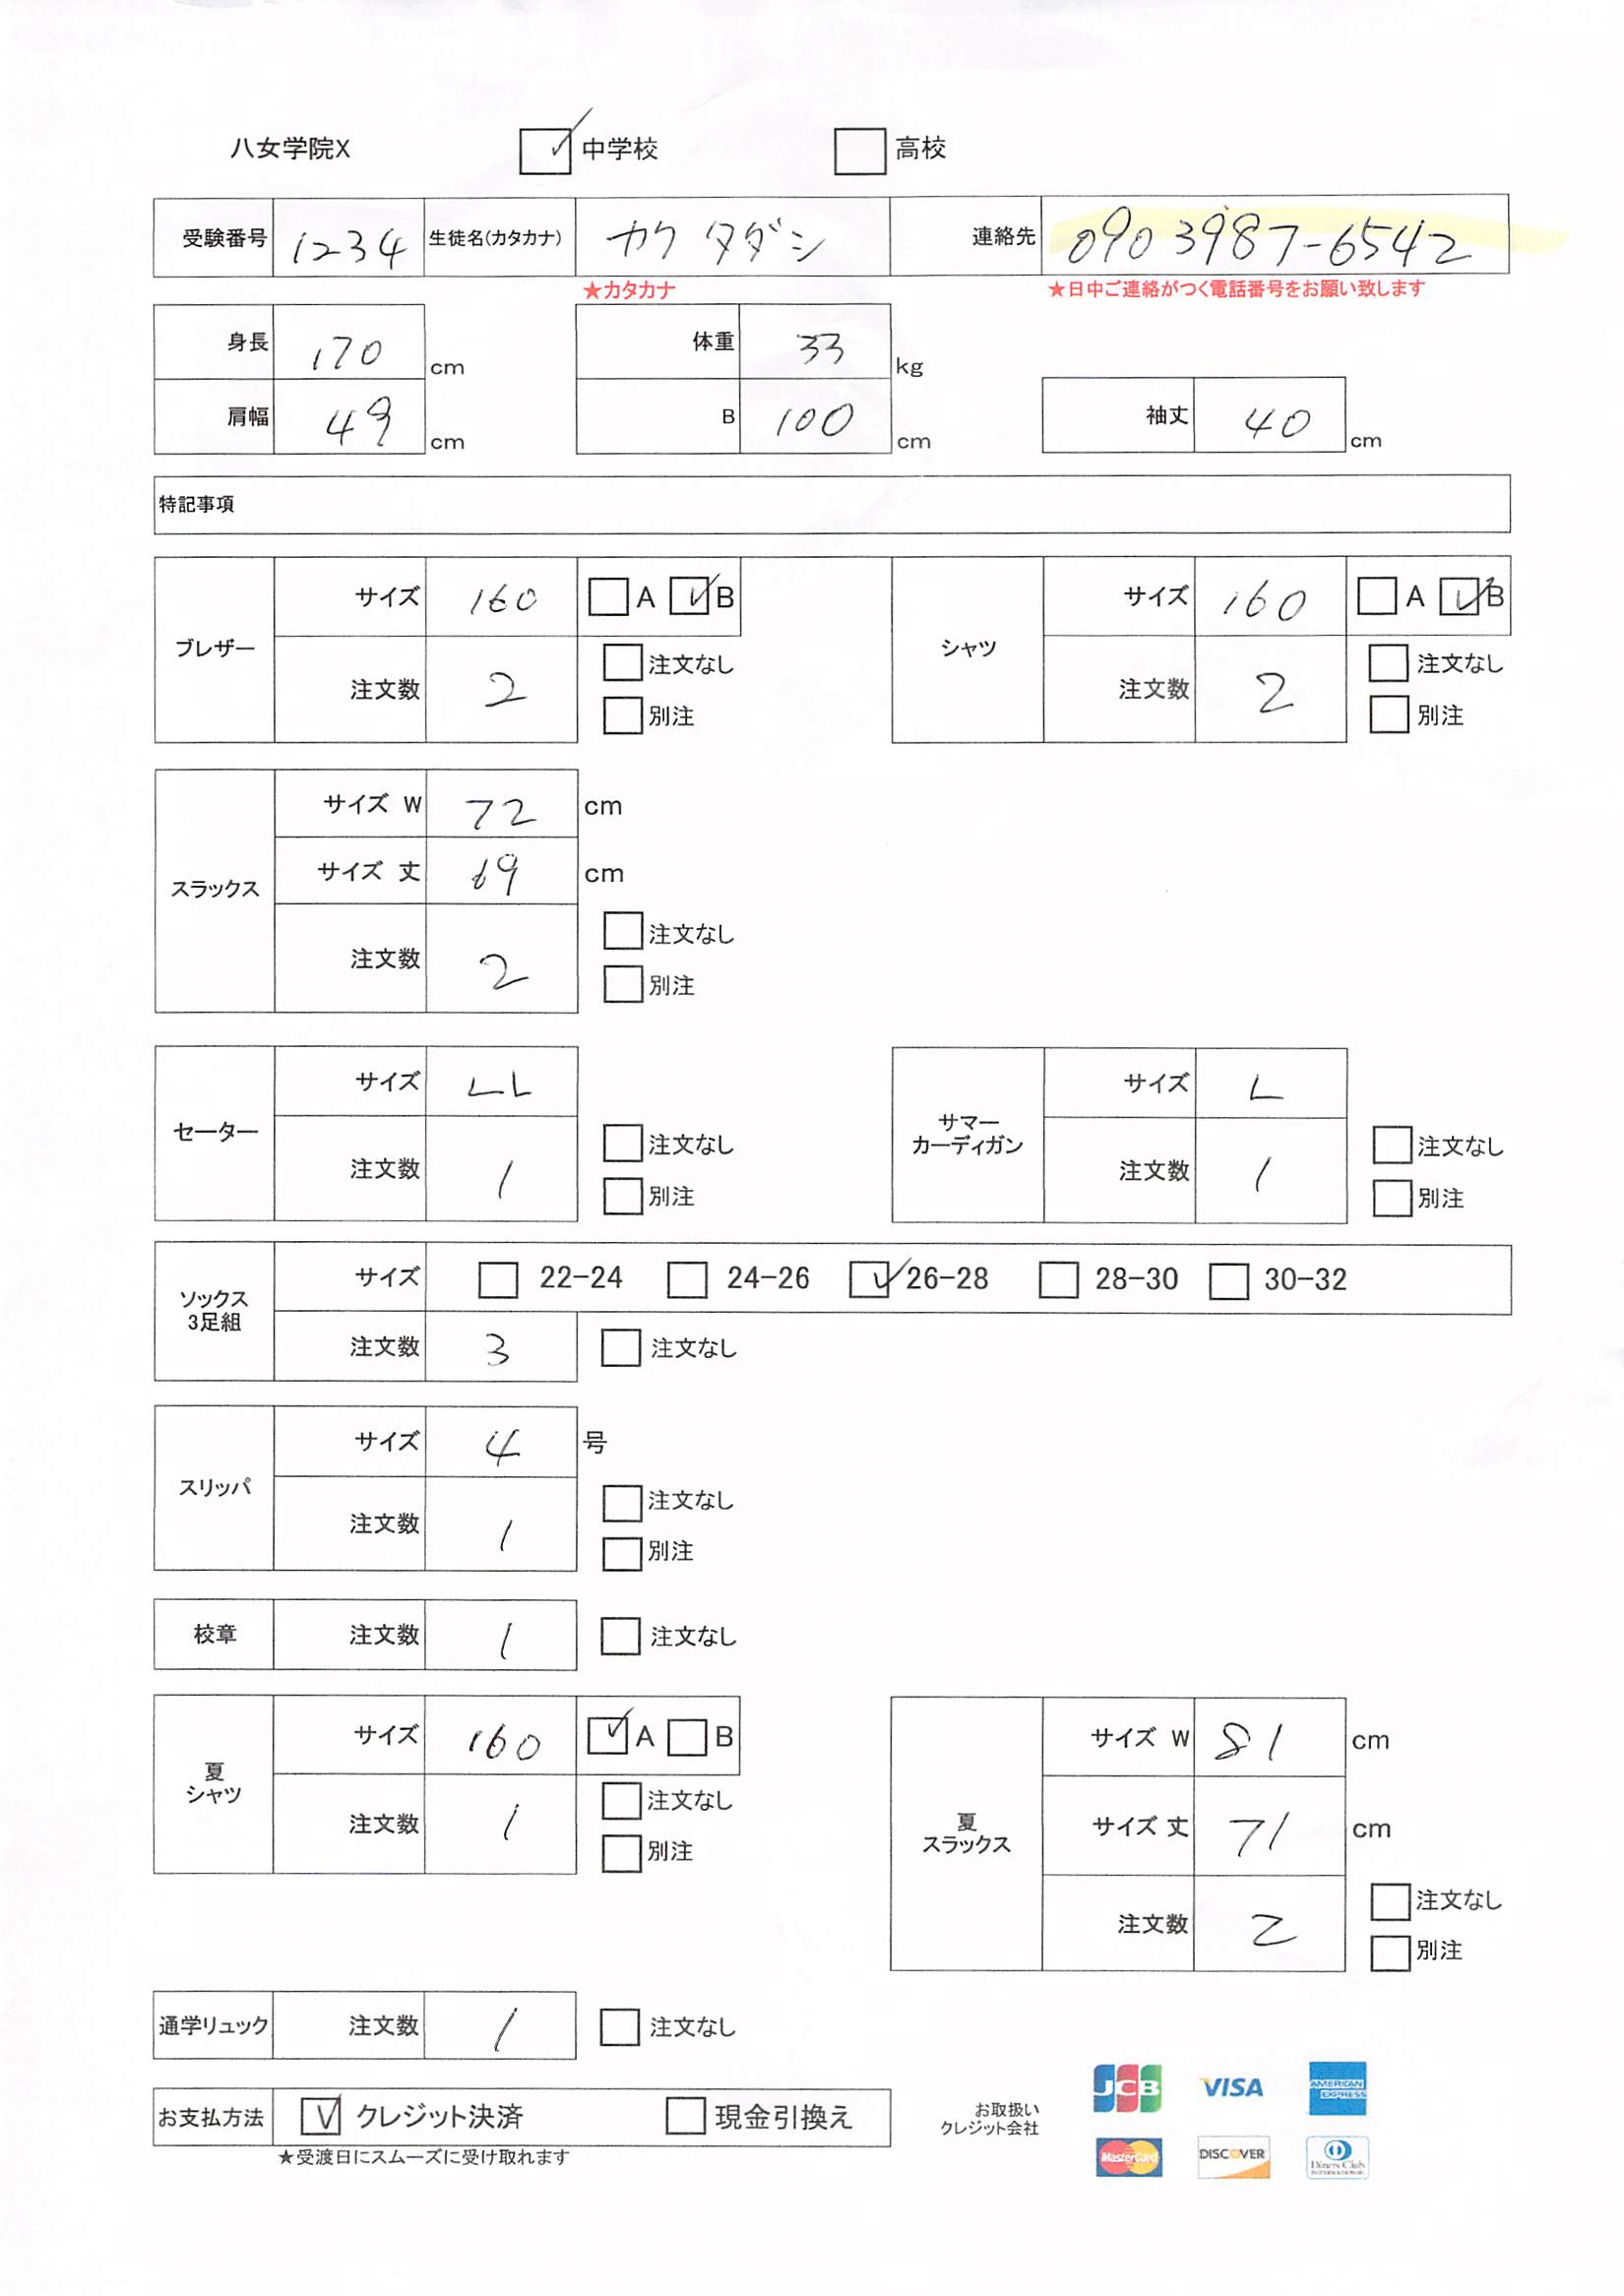 八女学院X ☑中学校 ☐高校
受験番号 1234 生徒名(カタカナ) カク タダシ 連絡先 090 3987-6542
★カタカナ ★日中ご連絡がつく電話番号をお願い致します
身長 170 cm 体重 33 kg
肩幅 49 cm B 100 cm 袖丈 40 cm
特記事項
ブレザー サイズ 160 ☐A ☑B
注文数 2 ☐注文なし
☐別注
シャツ サイズ 160 ☐A ☑B
注文数 2 ☐注文なし
☐別注
スラックス サイズ W 72 cm
サイズ 丈 69 cm
注文数 2 ☐注文なし
☐別注
セーター サイズ LL
注文数 1 ☐注文なし
☐別注
サマー
カーディガン
サイズ L
注文数 1 ☐注文なし
☐別注
ソックス
3足組
サイズ ☐22-24 ☐24-26 ☑26-28 ☐28-30 ☐30-32
注文数 3 ☐注文なし
スリッパ サイズ 4 号
注文数 1 ☐注文なし
☐別注
校章 注文数 1 ☐注文なし
夏
シャツ
サイズ 160 ☑A ☐B
注文数 1 ☐注文なし
☐別注
夏
スラックス
サイズ W 81 cm
サイズ 丈 71 cm
注文数 2 ☐注文なし
☐別注
通学リュック 注文数 1 ☐注文なし
お支払方法 ☑クレジット決済 ☐現金引換え
★受渡日にスムーズに受け取れます
お取扱い
クレジット会社
JCB VISA AMERICAN EXPRESS
MasterCard DISCOVER Diners Club INTERNATIONAL